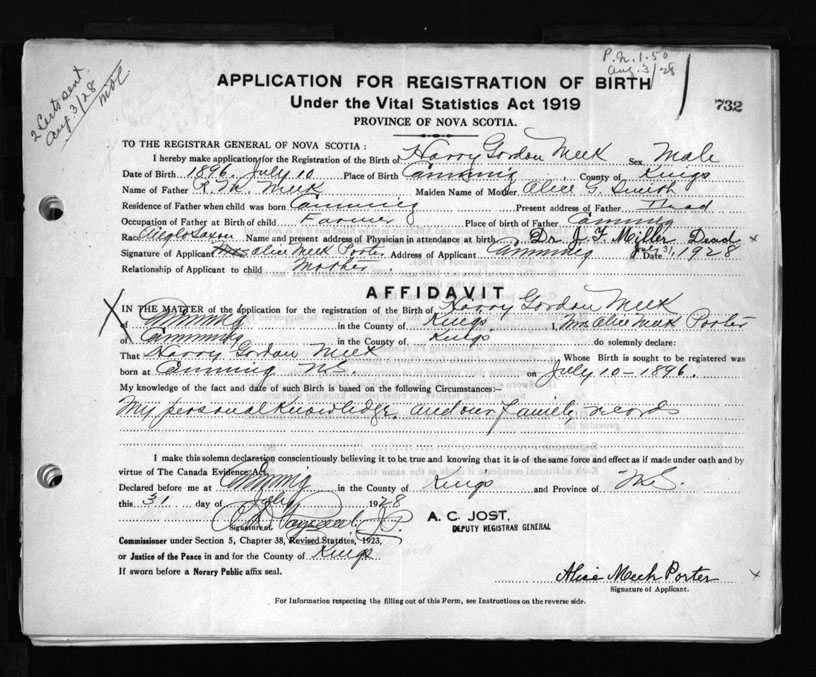 2 Certs sent
Aug. 3/28
P.N. 1.50
Aug. 3/28
APPLICATION FOR REGISTRATION OF BIRTH
732
Under the Vital Statistics Act 1919
PROVINCE OF NOVA SCOTIA.
TO THE REGISTRAR GENERAL OF NOVA SCOTIA :
I hereby make application for the Registration of the Birth of Harry Gordon Meek Sex Male
Date of Birth 1896, July 10 Place of Birth Canning, County of Kings
Name of Father R. W. Meek Maiden Name of Mother Alice G. Smith
Residence of Father when child was born Canning Present address of Father
Occupation of Father at Birth of child Farmer Place of birth of Father Canning
Race Anglo Saxon Name and present address of Physician in attendance at birth Dr. J. F. Miller Dead x
Signature of Applicant Mrs Alice Meek Porter Address of Applicant Canning Date July 31, 1928
Relationship of Applicant to child Mother
AFFIDAVIT
IN THE MATTER of the application for the registration of the Birth of Harry Gordon Meek
X of Canning in the County of Kings I, Mrs Alice Meek Porter
of Canning in the County of Kings do solemnly declare:
That Harry Gordon Meek Whose Birth is sought to be registered was
born at Canning N.S. on July 10 - 1896.
My knowledge of the fact and date of such Birth is based on the following Circumstances:—
My personal knowledge, and our family records
I make this solemn declaration conscientiously believing it to be true and knowing that it is of the same force and effect as if made under oath and by
virtue of The Canada Evidence Act
Declared before me at Canning in the County of Kings and Province of N.S.
this 31 day of July 1928
Signature of J.P.
A. C. JOST,
DEPUTY REGISTRAR GENERAL
Commissioner under Section 5, Chapter 38, Revised Statutes, 1923,
or Justice of the Peace in and for the County of Kings
If sworn before a Norary Public affix seal.
Alice Meek Porter x
Signature of Applicant.
For Information respecting the filling out of this Form, see Instructions on the reverse side.